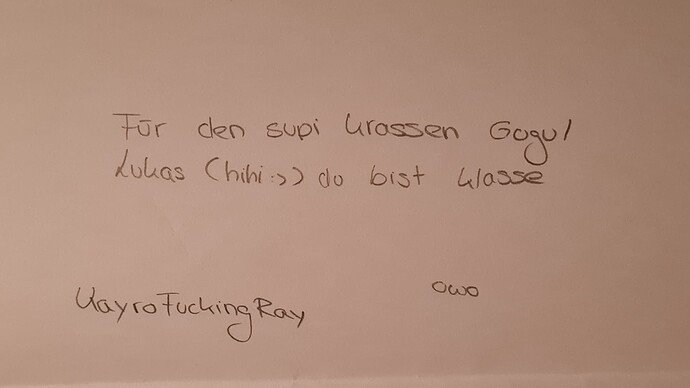 Für den supi krassen Gogu/
Lukas (hihi :>) du bist klasse
owo
KayroFuckingRay